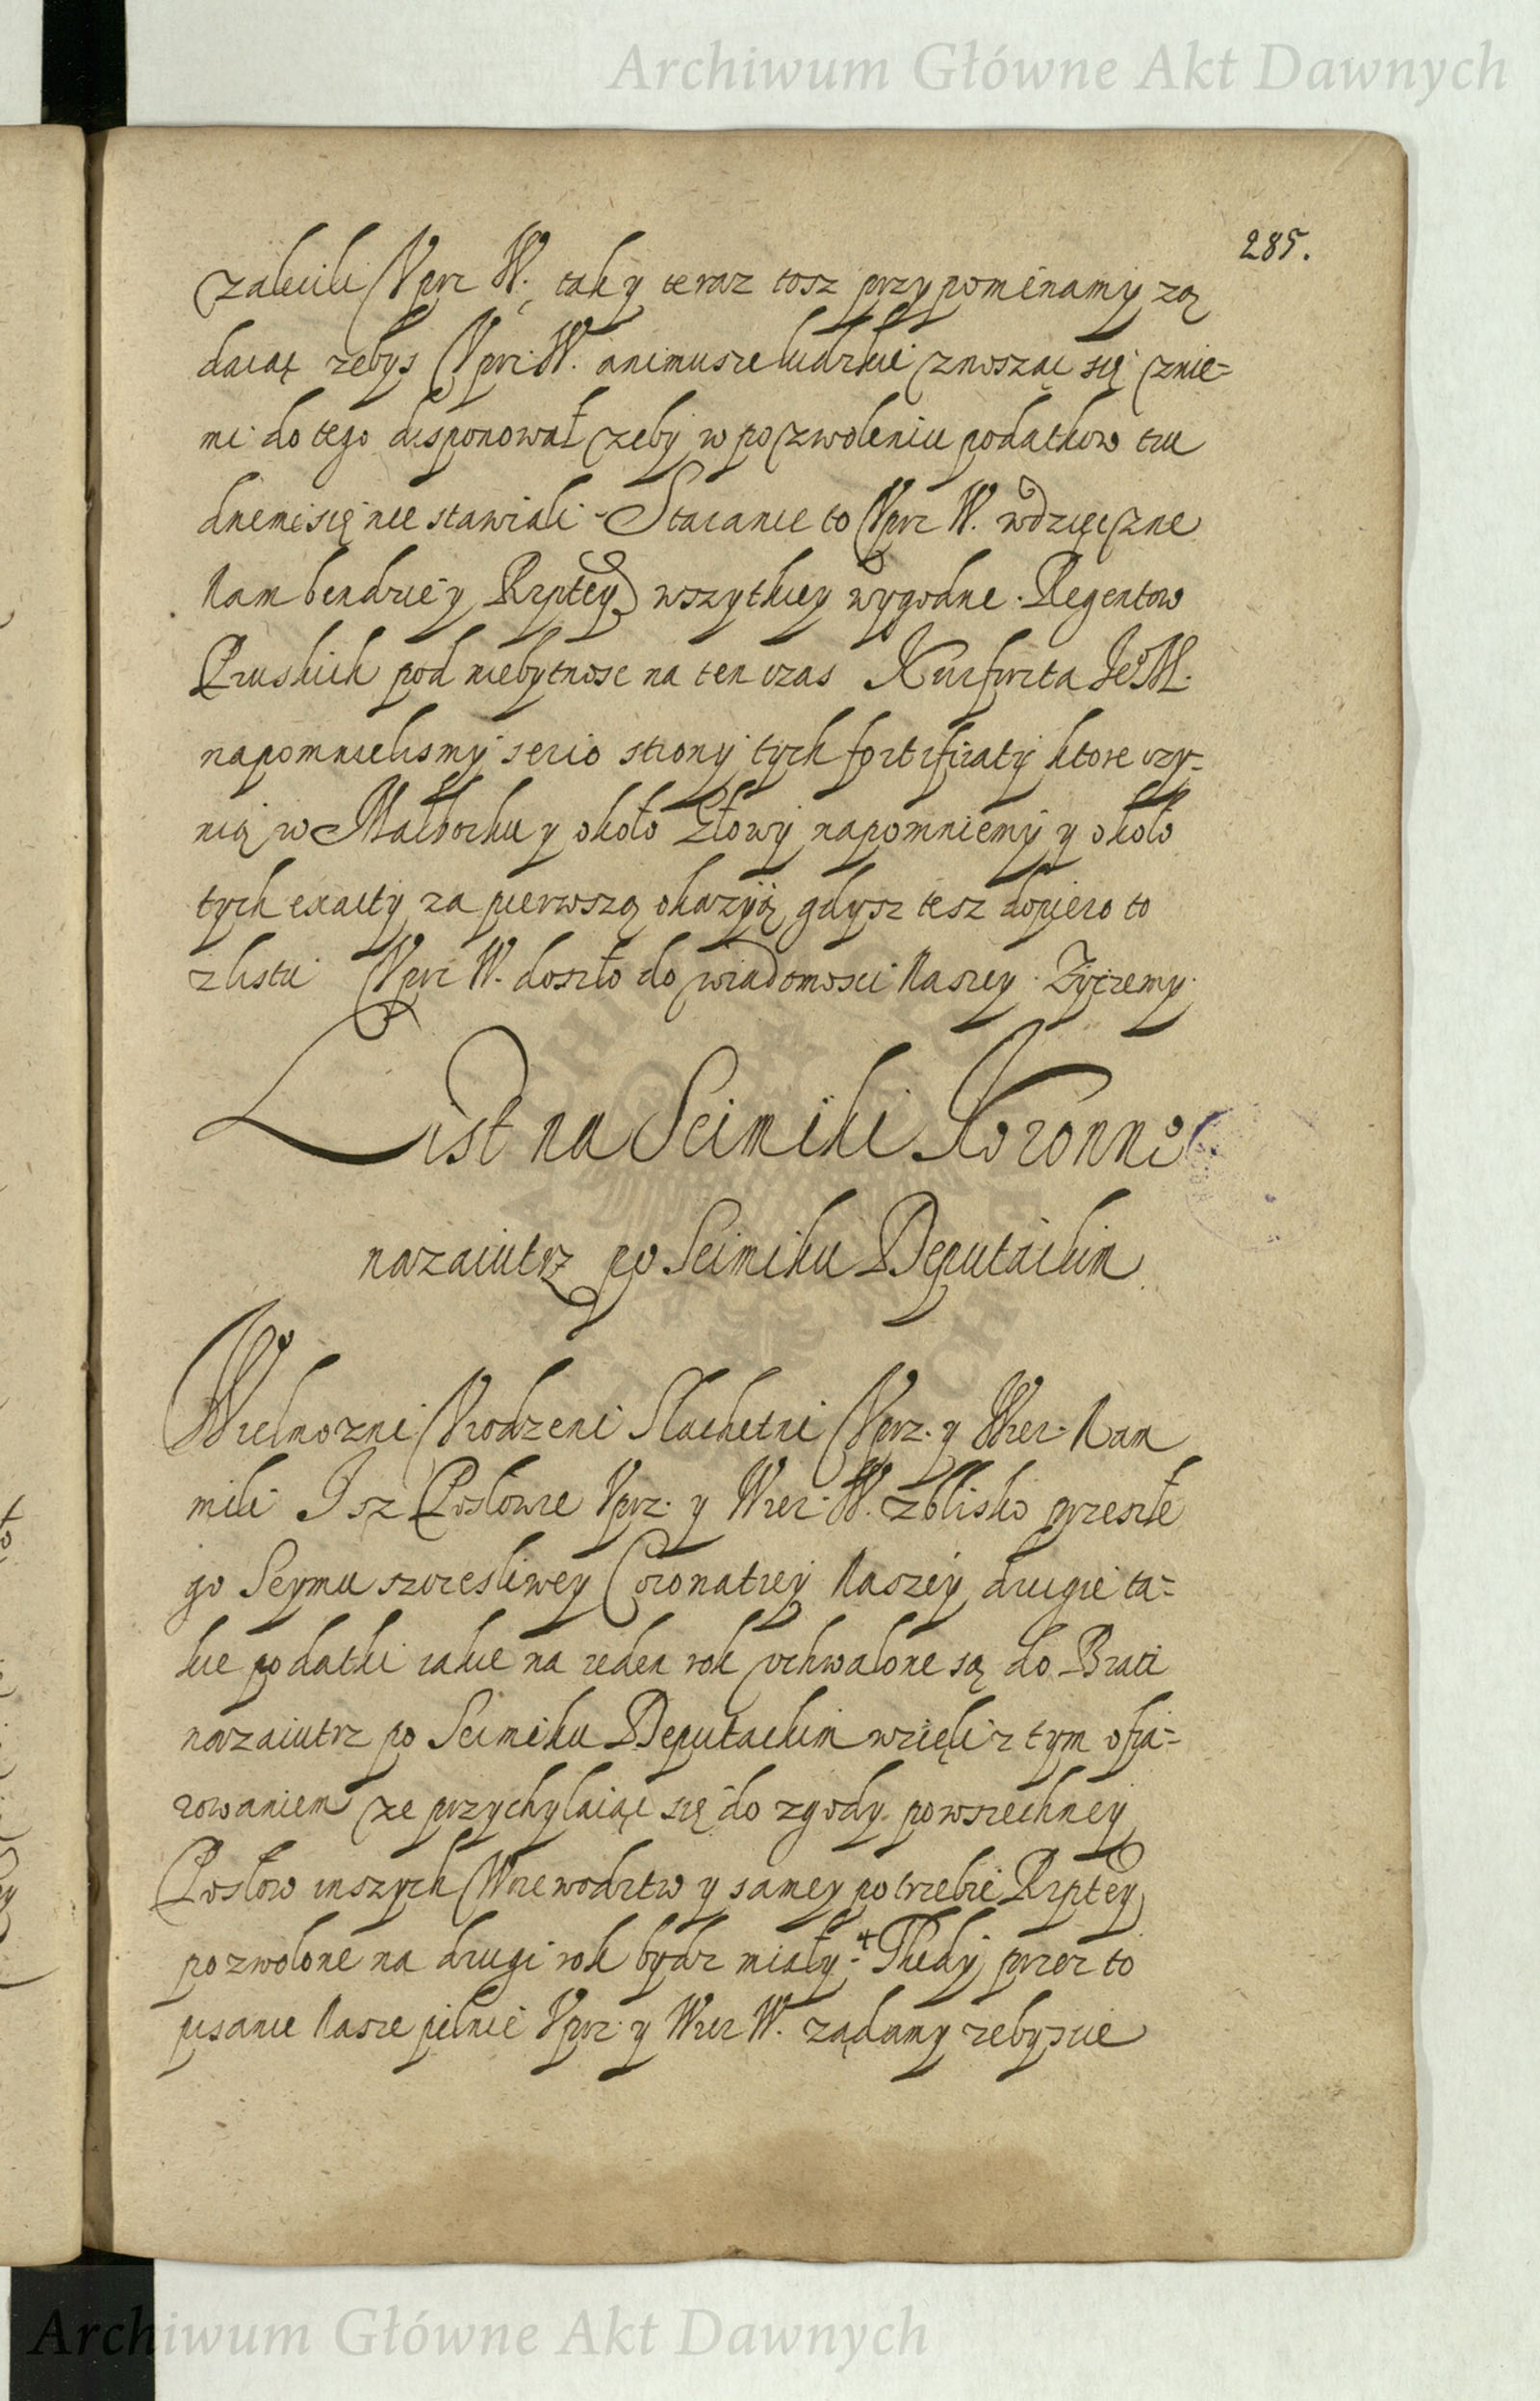 Archiwum Główne Akt Dawnych
285.
zalecili Vprz W. tak y teraz tosz przypominamy zą
daiąc zebys Vprz W. animusze ludzkie znosząc się znie=
mi do tego disponował zeby w pozwoleniu podatkow tru
dnemi się nie stawiali Staranie to Vprz W. wdzięczne
Nam bendzie y Rzptey wszytkiey wygodne. Regentow
Pruskich pod niebytnosc na ten czas Kurfirszta Je° M.
napomnielismy serio strony tych fortifikaty ktore czy=
nią w Malborku y około Iłowy napomniemy y około
tych exakty za pierwszą okazyią gdysz tesz dopiero to
z listu Vprz W. doszło do wiadomosci Naszey. Zyczemy.
List na Seimiki Koronne
nazaiutrz po Seimiku Deputackim
Wielmozni Vrodzeni Slachetni Vprz. y Wier. Nam
mili Isz Posłowie Vprz. y Wier. W. z blisko przeszłe
go Seymu szczesliwey Coronatiey Naszey drugie ta=
kie podatki iakie na ieden rok vchwalone są do Braci
nazaiutrz po Seimiku Deputackim wzięli z tym ofia=
rowaniem ze przychylaiąc się do zgody powszechney
Posłow inszych Woiewodztw y samey potrzebie Rzptey
pozwolone na drugi rok bydz miały. Thedy przez to
pisanie Nasze pilnie Vprz. y Wier W. ządamy zebyscie
Archiwum Główne Akt Dawnych